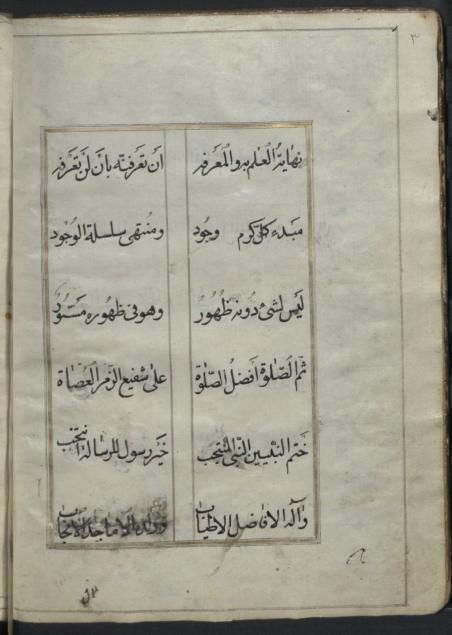 ٣
نهاية العلم به والمعرفه ان تعرفنه بان لن تعرفه
مبدء كل كرم وجود ومنتهى سلسلة الوجود
ليس لشئ دونه ظهور وهو فى ظهوره مستور
ثم الصلوة افضل الصلوة على شفيع الزمر العصاة
ختم النبيين النبى المنتجب خير رسول للرسالة انتخب
وآله الافاضل الاطياب الاماجد الانجاب